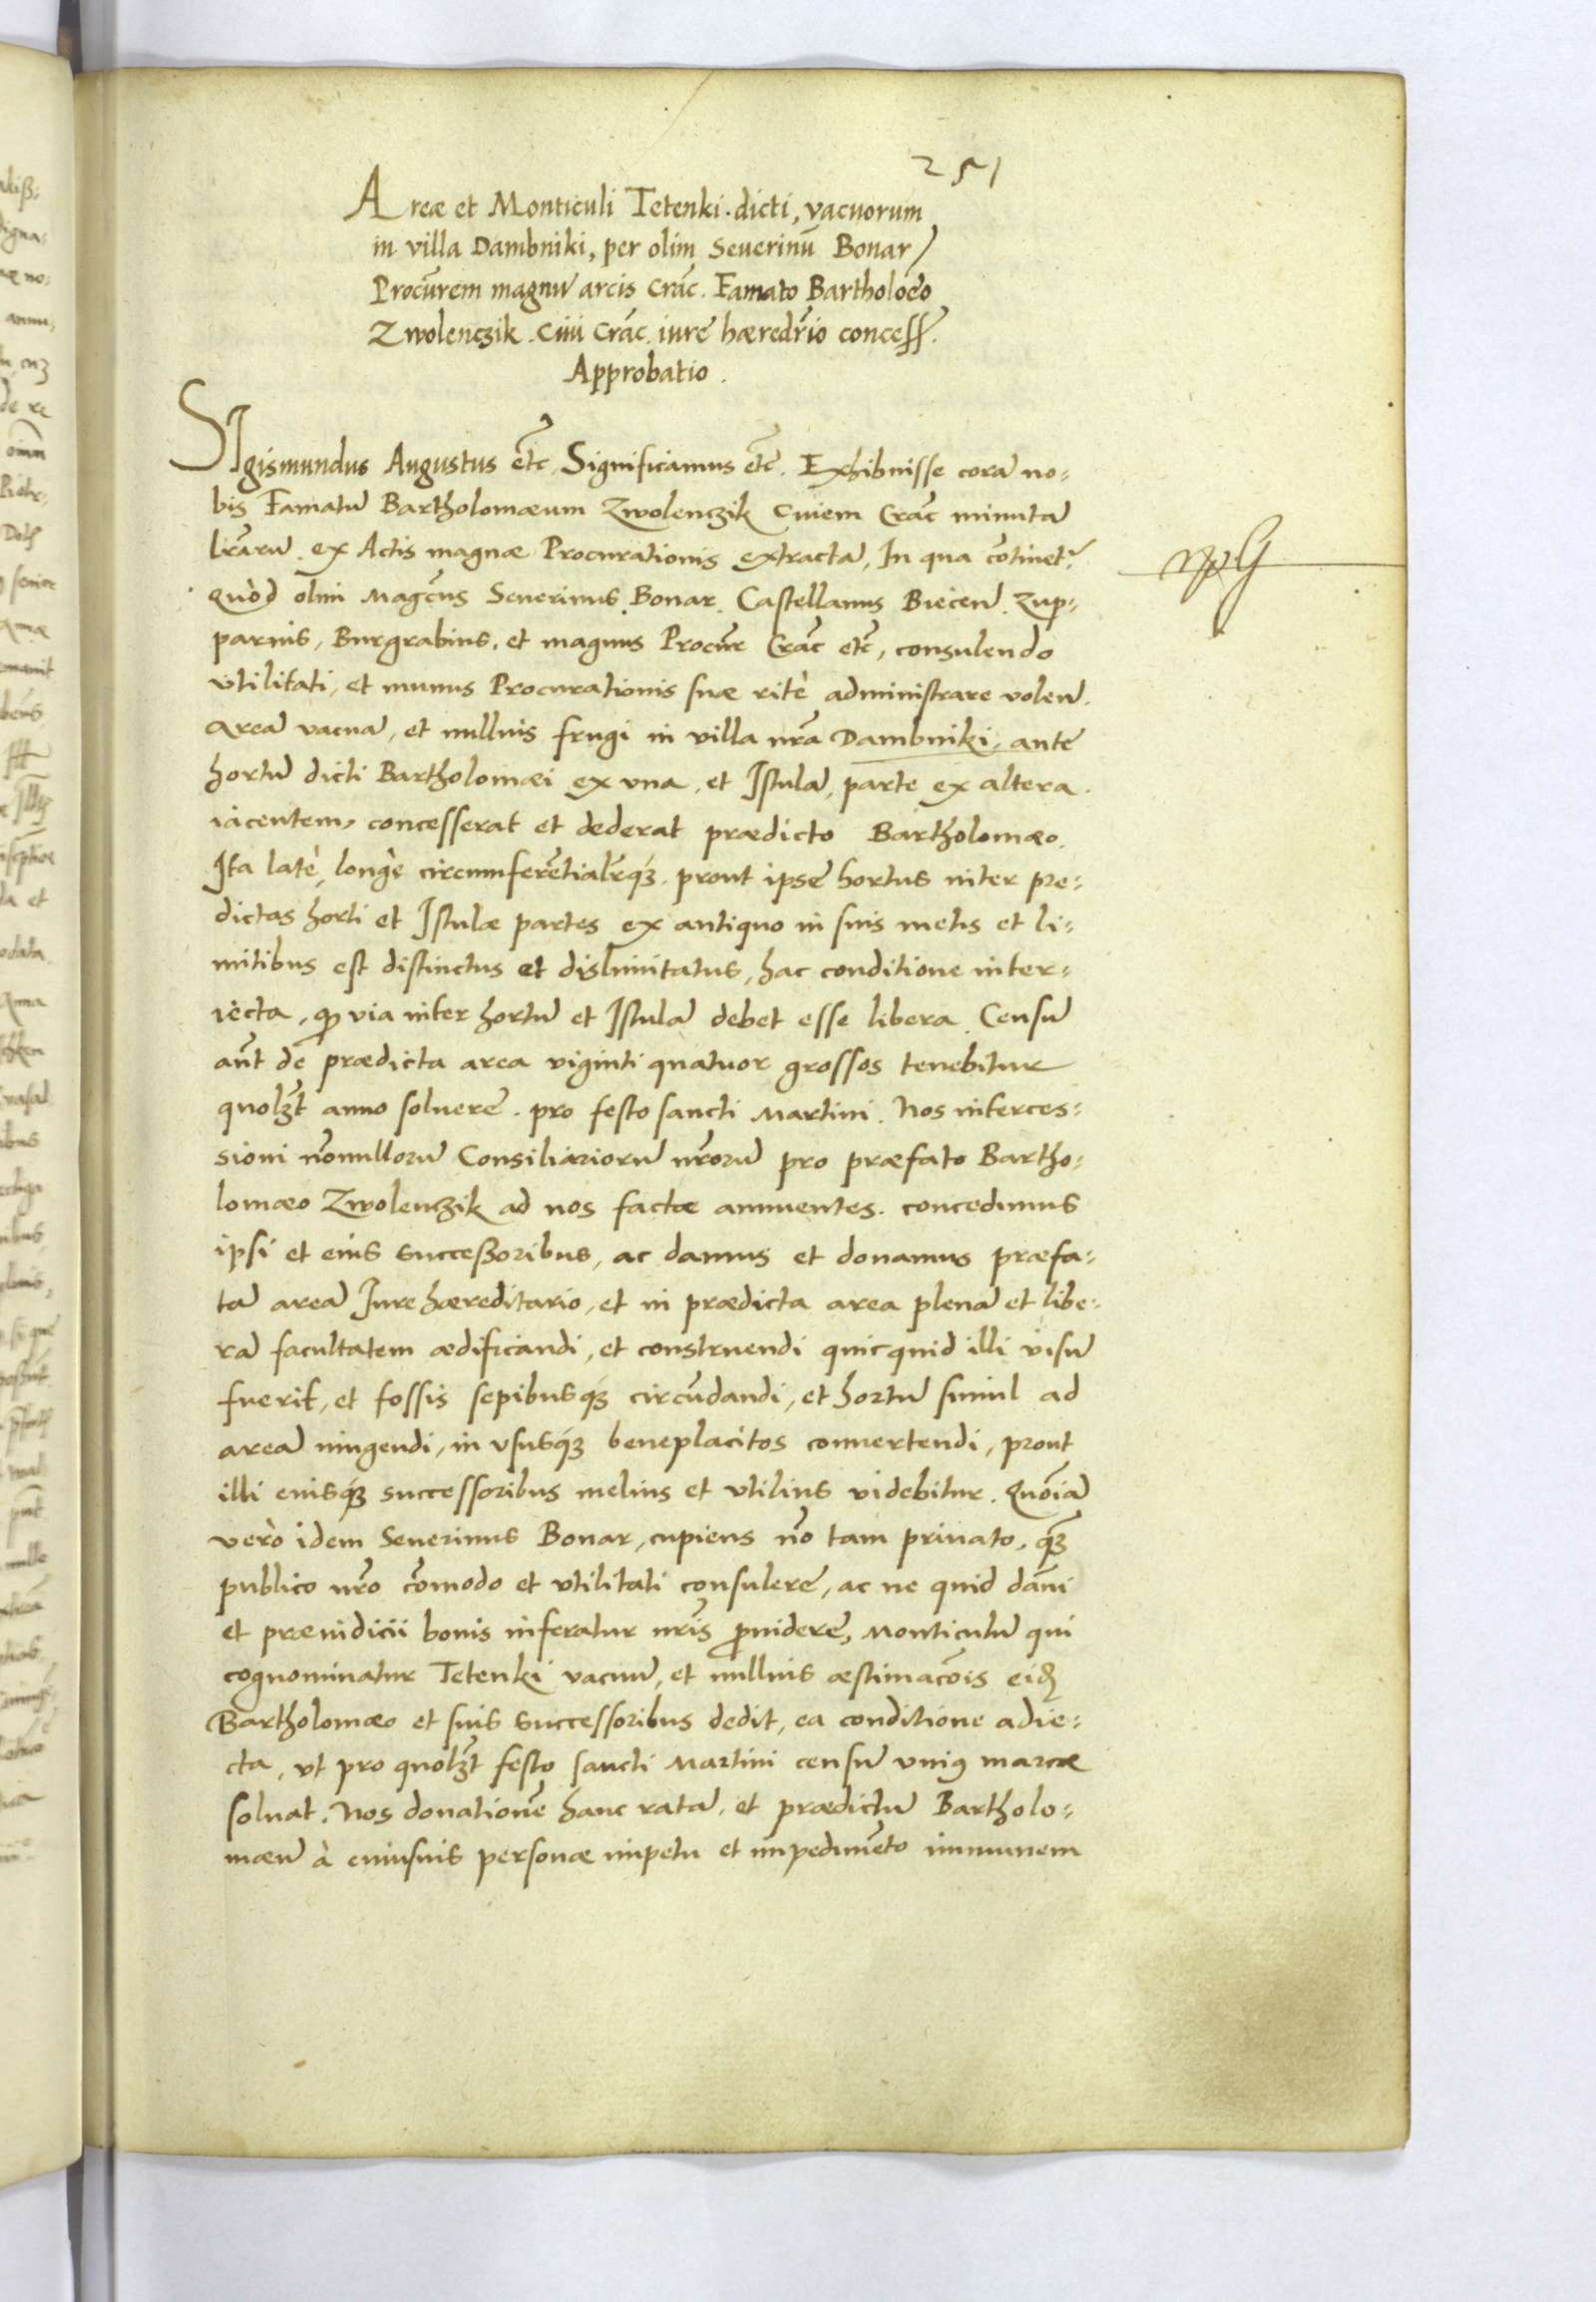 251
Areæ et Monticuli Tetenki dicti, vacuorum
in villa Dambniki, per olim Seuerinū Bonar
Procūrem magnū arcis Crac̄. Famato Bartholoeō
Zwolenczik Ciui Crac̄. iure hæredr̄io concess̄.
Approbatio.
SIgismundus Augustus etc̄ Significamus etc̄. Exhibuisse corā no=
bis Famatū Bartholomæum Zwolenczik Ciuem Crac̄ minutā
lr̄arū ex Actis magnæ Procurationis extractā, In qua cōtinet᷑
quòd olim Magc̄us Seuerinus Bonar Castellanus Biecen̄. Zup=
parius, Burgrabius, et magnus Procūr Crac̄ etc̄, consulendo
vtilitati, et munus Procurationis suæ ritè administrare volen̄.
Areā vacuā, et nullius frugi in villa nr̄a Dambniki, ante
hortū dicti Bartholomæi ex vna, et Istulā, parte ex altera
iacentem, concesserat et dederat prædicto Bartholomæo.
Ita latè, longè circumferētialr̄qꝫ prout ipse hortus inter præ=
dictas horti et Istulæ partes ex antiquo in suis metis et li=
mitibus est distinctus et dislimitatus, hac conditione inter=
iecta, qꝙ via inter hortū et Istulā debet esse libera. Censū
aūt de prædicta area viginti quatuor grossos tenebitur
quolꝫt anno soluere pro festo sancti Martini. Nos interces=
sioni nōnullorū Consiliariorū nr̄orū pro præfato Bartho=
lomæo Zwolenczik ad nos factæ annuentes. concedimus
ipsi et eius successoribus, ac damus et donamus præfa=
tā areā Iure hæreditario, et in prædicta area plenā et libe=
rā facultatem ædificandi, et construendi quicquid illi visū
fuerit, et fossis sepibusqꝫ circūdandi, et hortū simul ad
areā iungendi, in vsusqꝫ beneplacitos conuertendi, prout
illi eiusqꝫ successoribus melius et vtilius videbitur. Quōiā
verò idem Seuerinus Bonar, cupiens nō tam priuato, qꝫ
publico nr̄o cōmodo et vtilitati consulere, ac ne quid dāni
et præiudicii bonis inferatur nr̄is ꝓuidere, Monticulū qui
cognominatur Tetenki vacuū, et nullius æstimacōis eid̄
Bartholomæo et suis successoribus dedit, ea conditione adie=
cta, vt pro quolꝫt festo sancti Martini censū vniꝰ marcæ
soluat. Nos donationē hanc ratā, et prædictū Bartholo=
mæū à cuiusuis personæ impetu et impedimēto immunem